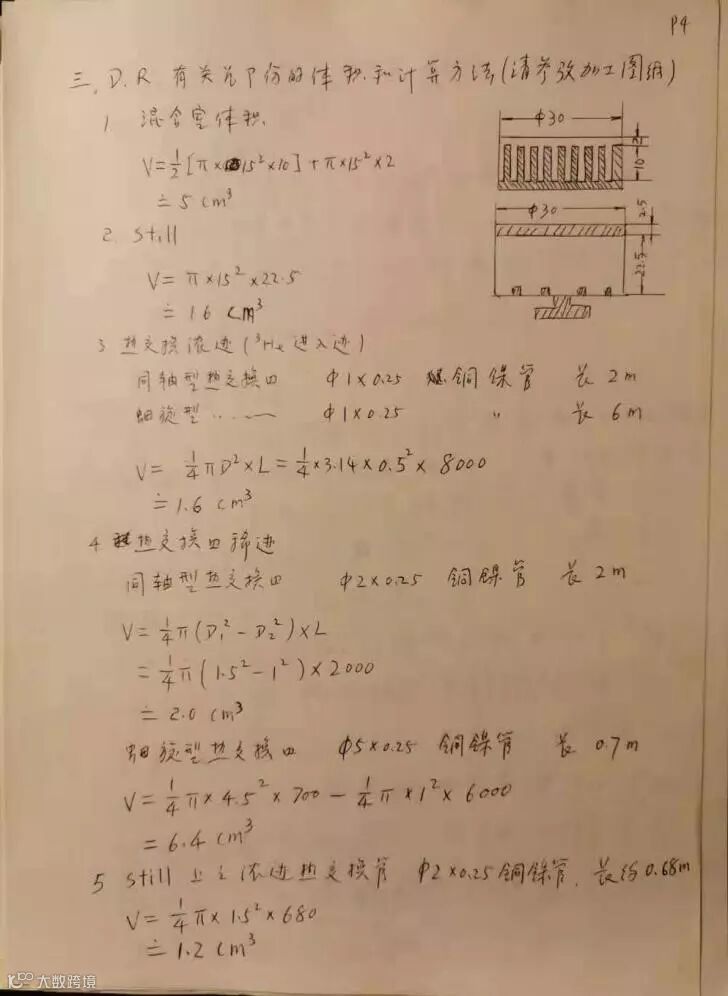 P4
三、D.R. 有关部份的体积和计算方法(请参考加工图纸)
1. 混合室体积.
V=½[π×15²×10]+π×15²×2
≐5 cm³
φ30
2
10
2. still
φ30
2.5
22.5
V=π×15²×22.5
≐16 cm³
3 热交换浓边(³He进入边)
同轴型热交换四 φ1×0.25 铜镍管 长 2m
φ1×0.25 〃 长 6m
V= ¼πD²×L=¼×3.14×0.5²×8000
≐1.6 cm³
4 热交换四稀边
同轴型热交换四 φ2×0.25 铜镍管 长 2m
V=¼π(D₁²-D₂²)×L
=¼π(1.5²-1²)×2000
≐2.0 cm³
型热交换四 φ5×0.25 铜镍管 长 0.7m
V=¼π×4.5²×700-¼π×1²×6000
=6.4 cm³
5 still 上之浓边热交换管 φ2×0.25铜镍管, 长约0.68m
V=¼π×1.5²×680
≐1.2 cm³
大数跨境